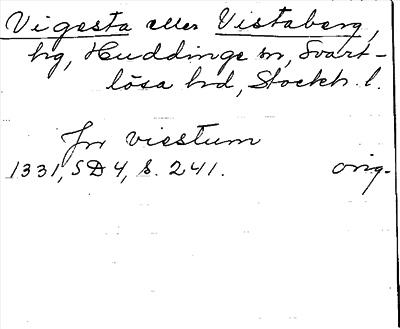 Vigesta eller Vistaberg,
hg, Huddinge sn, Svart-
lösa hd, Stockh. l.
Jn visstum
1331, SD 4, s. 241. orig.